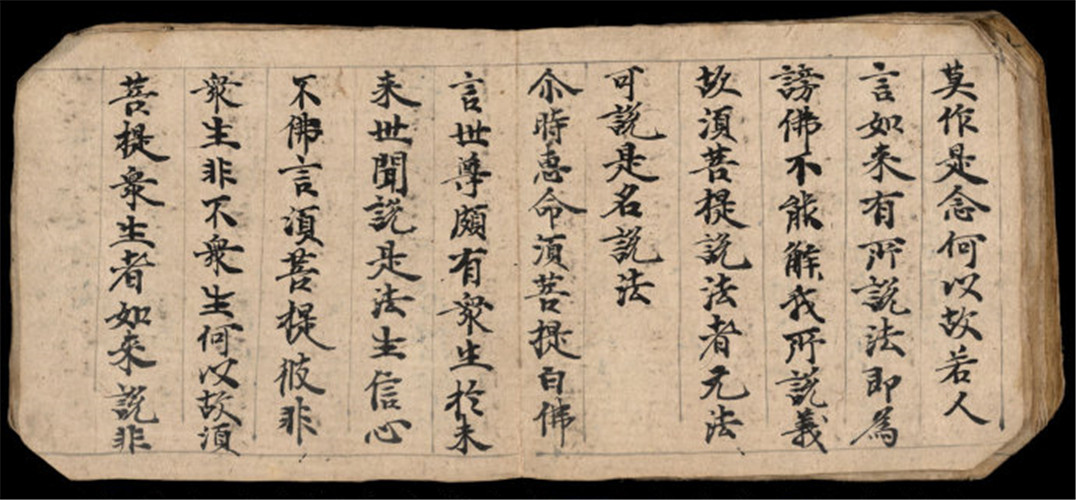 莫作是念何以故若人
言如来有所說法即為
謗佛不能解我所說義
故湏菩提說法者无法
可說是名說法
尒時惠命湏菩提白佛
言世尊頗有衆生於未
来世聞說是法生信心
不佛言湏菩提彼非
衆生非不衆生何以故湏
菩提衆生者如来說非